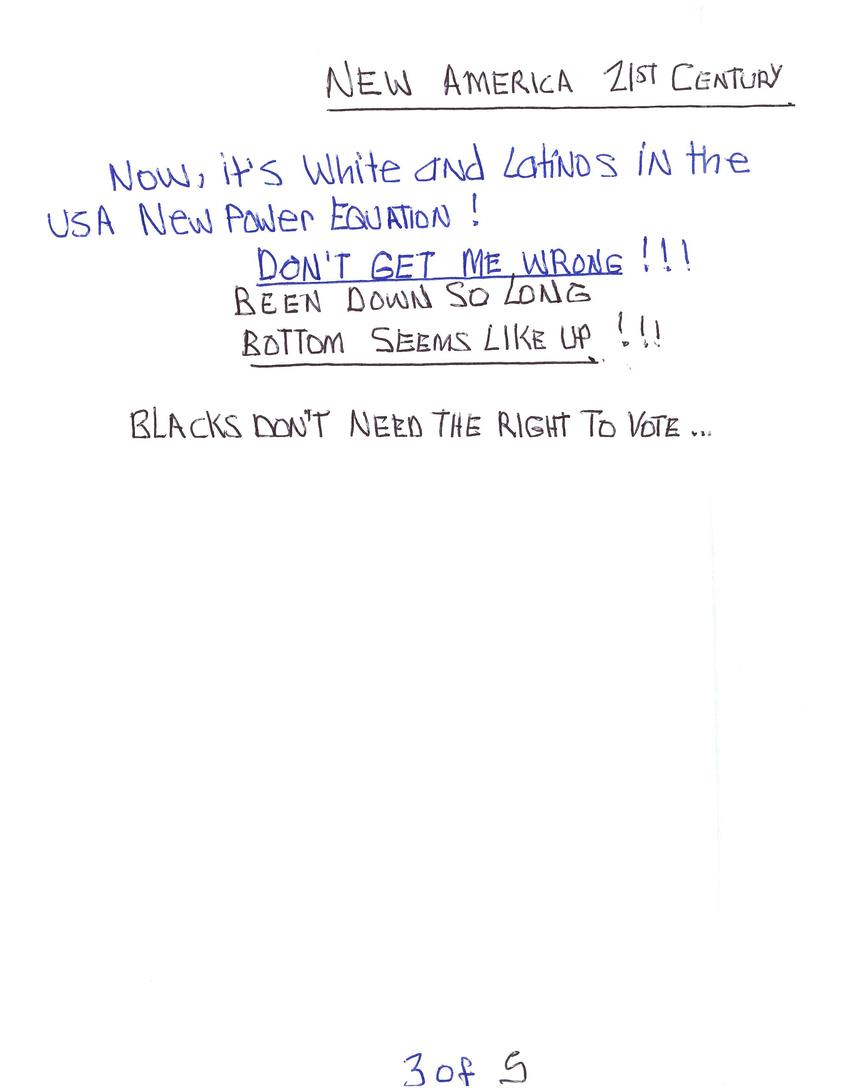 NEW AMERICA 21ST CENTURY
Now, it's White and Latinos in the
USA New Power EQUATION!
DON'T GET ME WRONG!!!
BEEN DOWN SO LONG
BOTTOM SEEMS LIKE UP!!!
BLACKS DON'T NEED THE RIGHT TO VOTE...
3 of 5